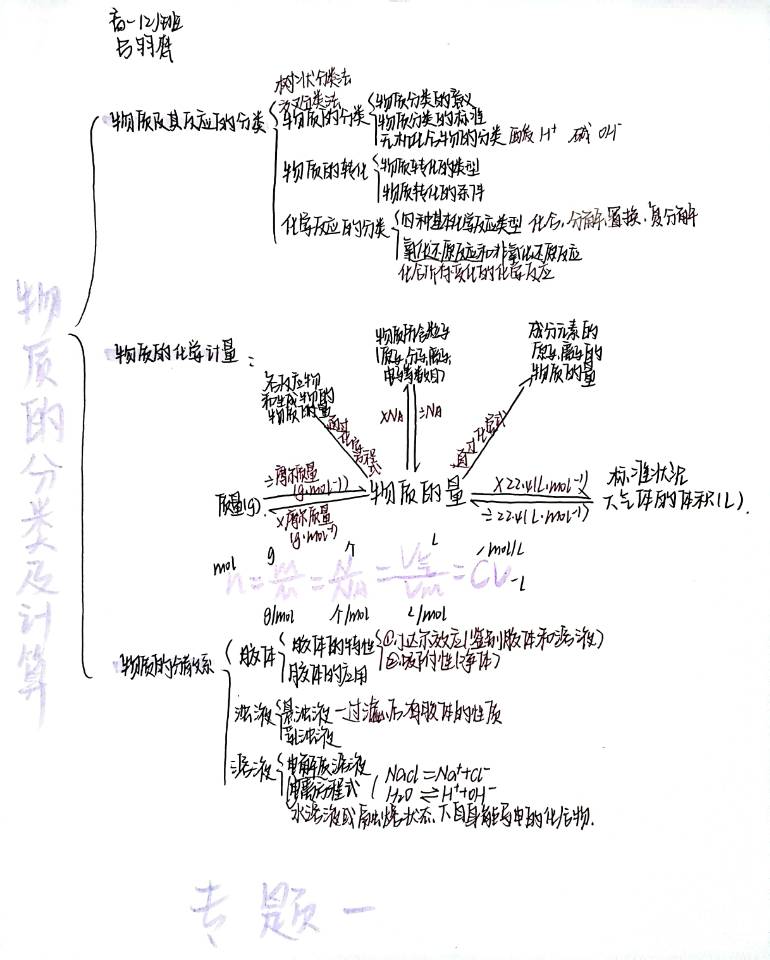 高一12班
物质的分类及计算
物质及其反应的分类
树状分类法
交叉分类法
物质的分类
物质分类的意义
物质分类的标准
无机化合物的分类 酸 H⁺ 碱 OH⁻
物质的转化
物质转化的类型
物质转化的条件
化学反应的分类
四种基本化学反应类型 化合、分解、置换、复分解
氧化还原反应和非氧化还原反应
化合价有变化的化学反应
物质的化学计量:
各反应物
和生成物的
物质的量
通过化学方程式
物质所含粒子
(原子、分子、离子、
电子等数目)
×NA
÷NA
成分元素的
原子、离子的
物质的量
通过化学式
质量(g)
÷摩尔质量
(g·mol⁻¹)
×摩尔质量
(g·mol⁻¹)
物质的量
×22.4(L·mol⁻¹)
÷22.4(L·mol⁻¹)
标准状况
下气体的体积(L)
mol g 个 L mol/L
n=m/M=N/NA=V气/Vm=CV-L
g/mol 个/mol L/mol
物质的分散系
胶体
胶体的特性
①丁达尔效应(鉴别胶体和溶液)
②吸附性(净水)
胶体的应用
浊液
悬浊液-过滤后有胶体的性质
乳浊液
溶液
电解质溶液
电离方程式
NaCl=Na⁺+Cl⁻
H₂O⇌H⁺+OH⁻
水溶液或熔融状态下自身能导电的化合物.
专题一